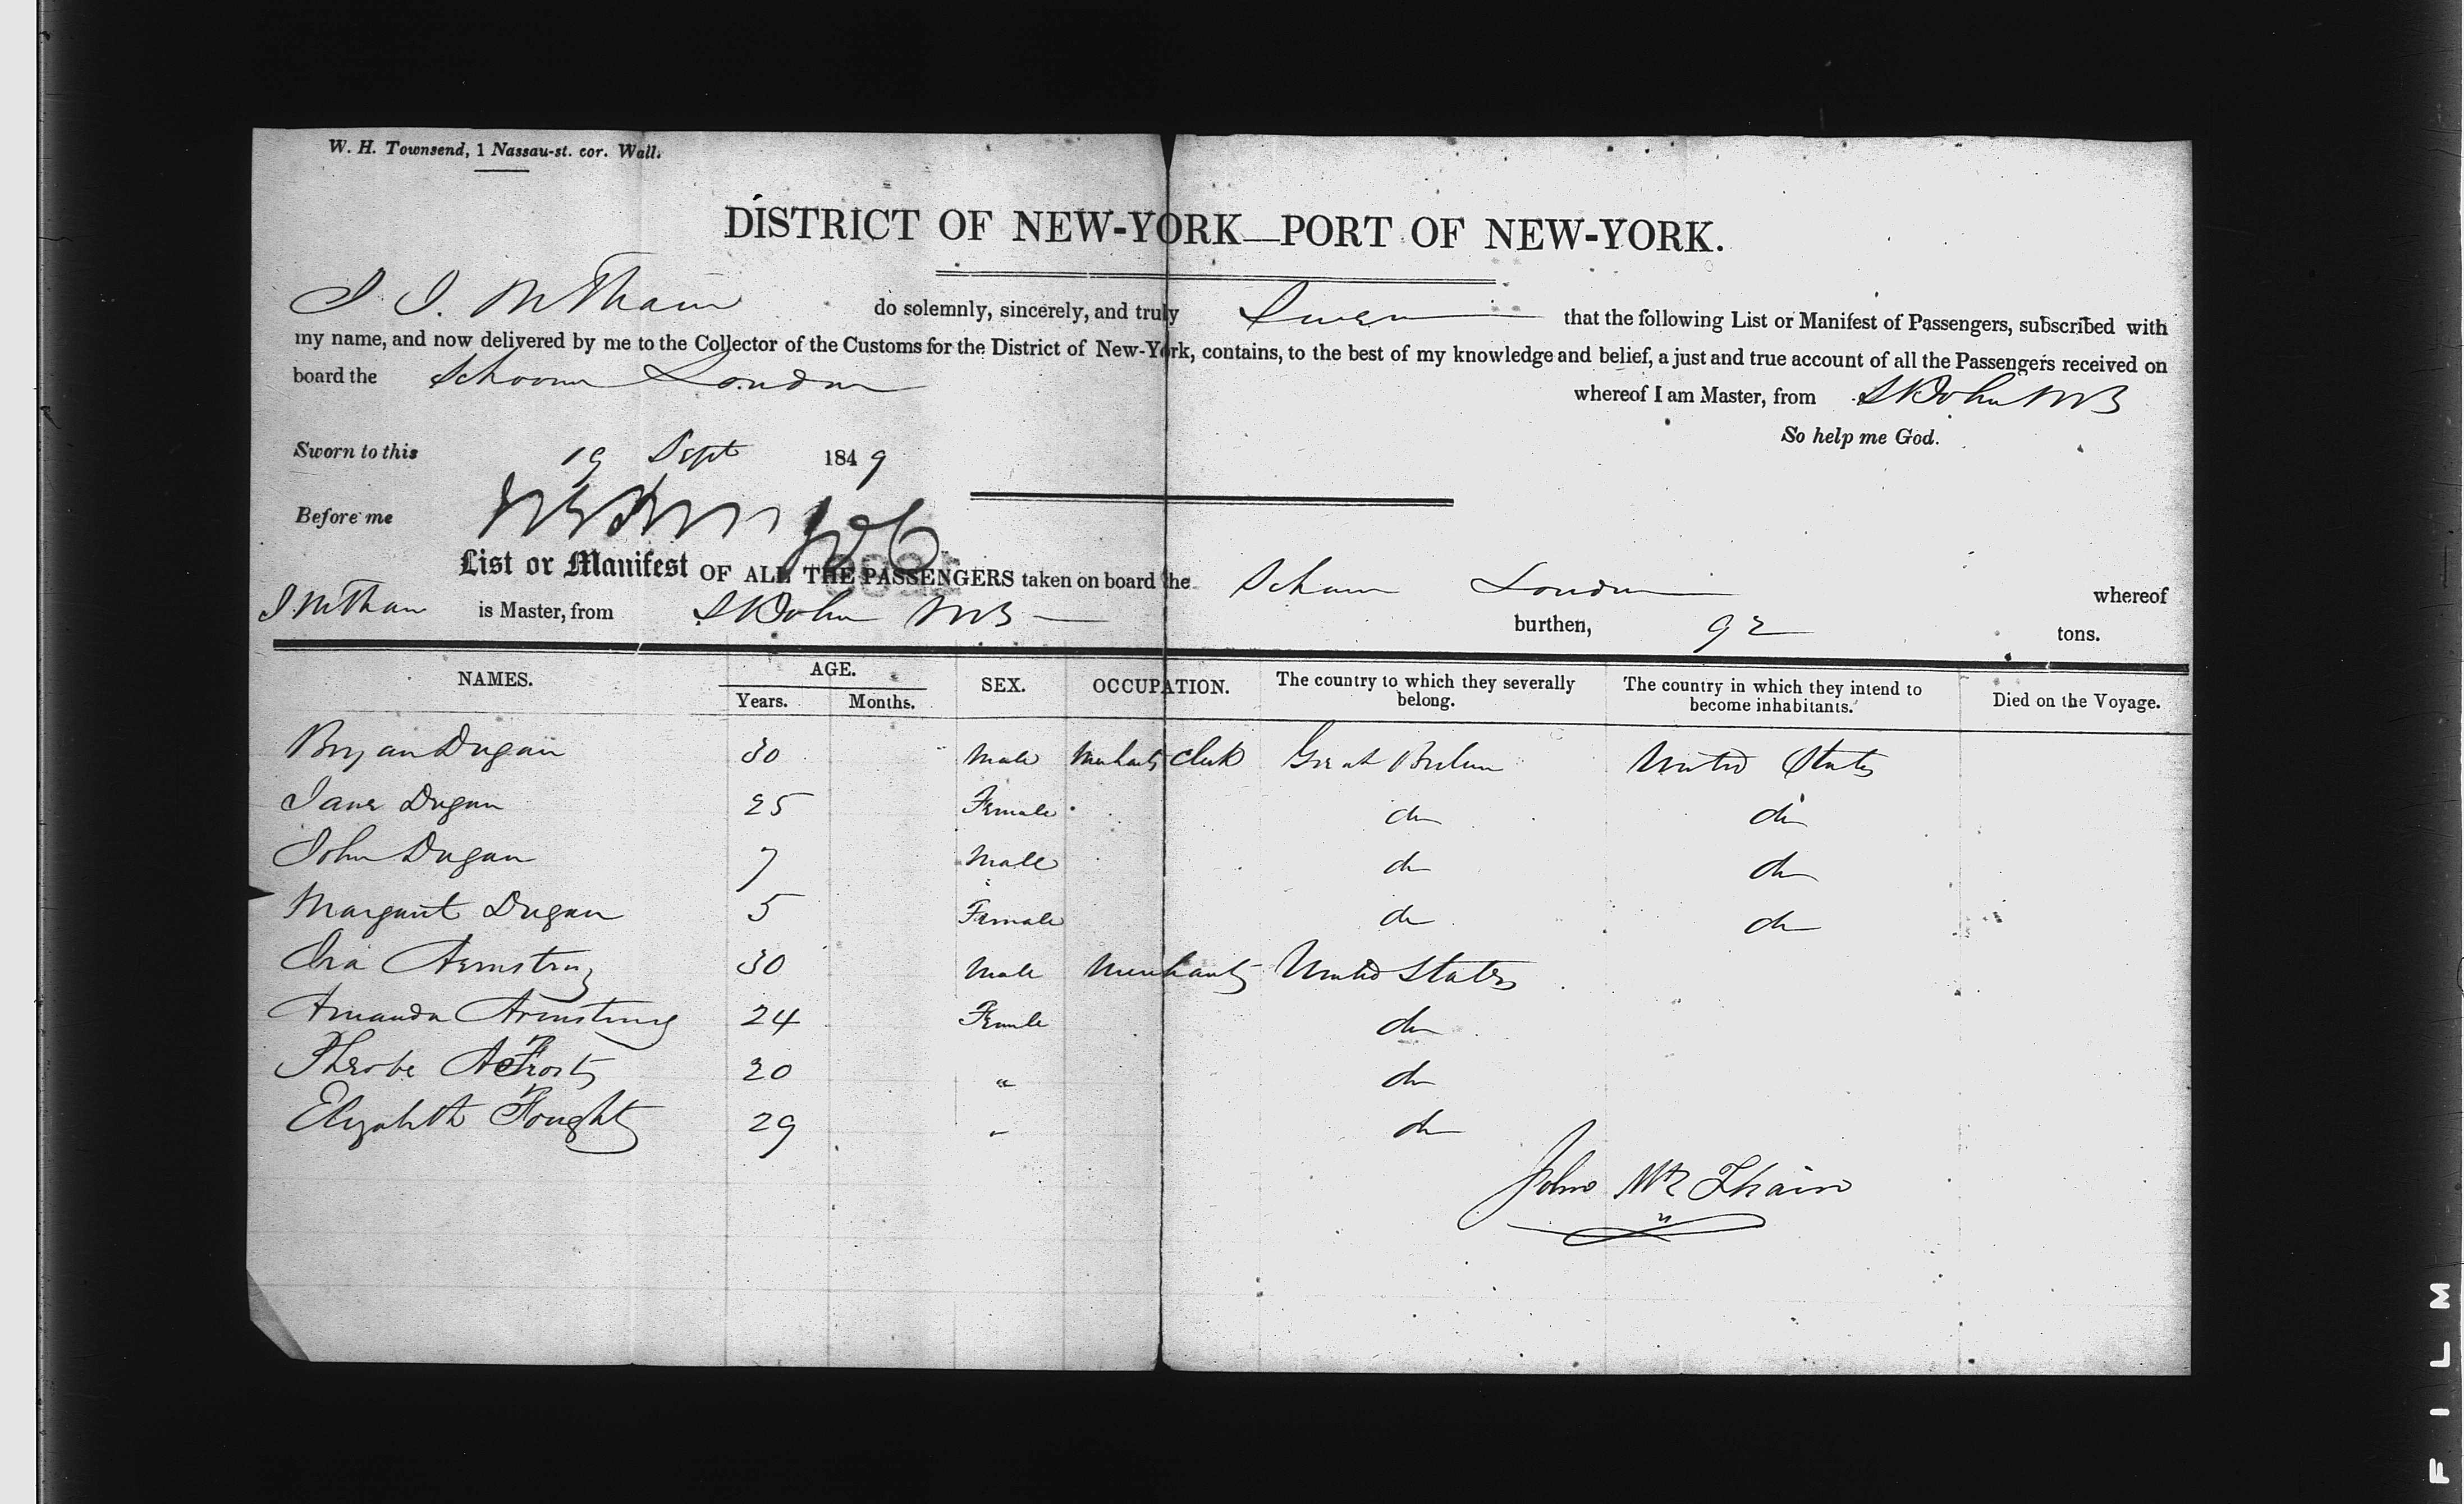 W. H. Townsend, 1 Nassau-st. cor. Wall.
DISTRICT OF NEW-YORK—PORT OF NEW-YORK.
I J. McThain do solemnly, sincerely, and truly Swear that the following List or Manifest of Passengers, subscribed with
my name, and now delivered by me to the Collector of the Customs for the District of New-York, contains, to the best of my knowledge and belief, a just and true account of all the Passengers received on
board the Schooner London whereof I am Master, from St John NB
So help me God.
Sworn to this 19 Sept 1849
Before me
List or Manifest OF ALL THE PASSENGERS taken on board the Schooner London whereof
J. McThain is Master, from St John NB burthen, 92 tons.
NAMES. AGE. SEX. OCCUPATION. The country to which they severally belong. The country in which they intend to become inhabitants. Died on the Voyage.
Years. Months.
Bryan Dugan 30 Male Merchants Clerk Great Britain United States
Jane Dugan 25 Female do do
John Dugan 7 Male do do
Margaret Dugan 5 Female do do
Ira Armstrong 30 Male Merchant United States
Amanda Armstrong 24 Female do
Pheobe A Frost 20 " do
Elizabeth Fought 29 " do
John Mc Thain
FILM